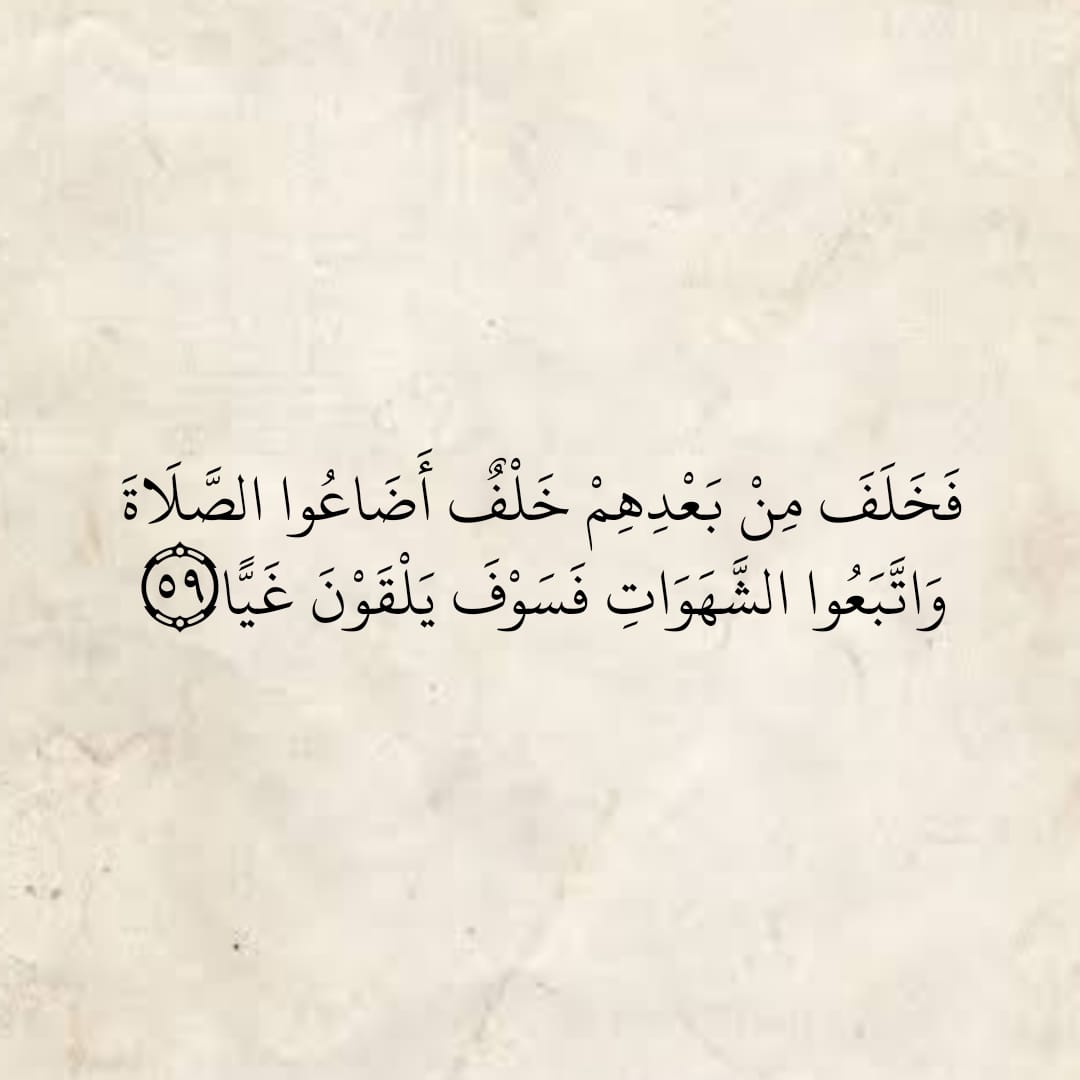 فَخَلَفَ مِنْ بَعْدِهِمْ خَلْفٌ أَضَاعُوا الصَّلَاةَ
وَاتَّبَعُوا الشَّهَوَاتِ فَسَوْفَ يَلْقَوْنَ غَيًّا ٥٩